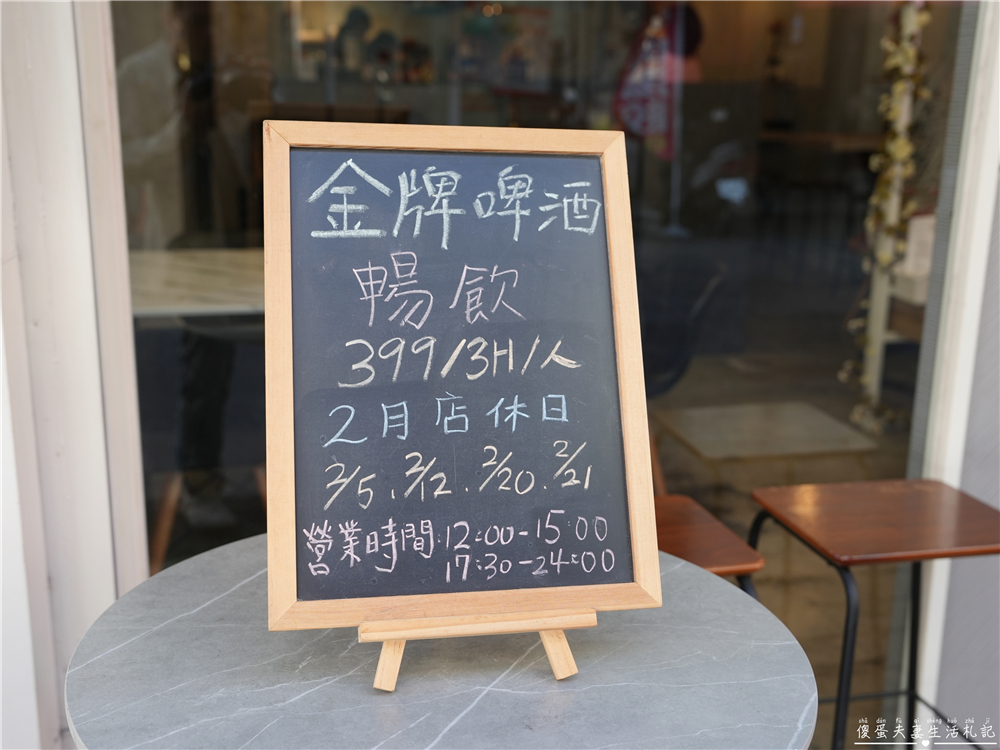 金牌啤酒
暢飲
399/3H/人
2月店休日
2/5、2/12、2/20、2/21
營業時間:12:00-15:00
17:30-24:00
shǎ dàn fū qī shēng huó zhá jì
傻蛋夫妻生活札記